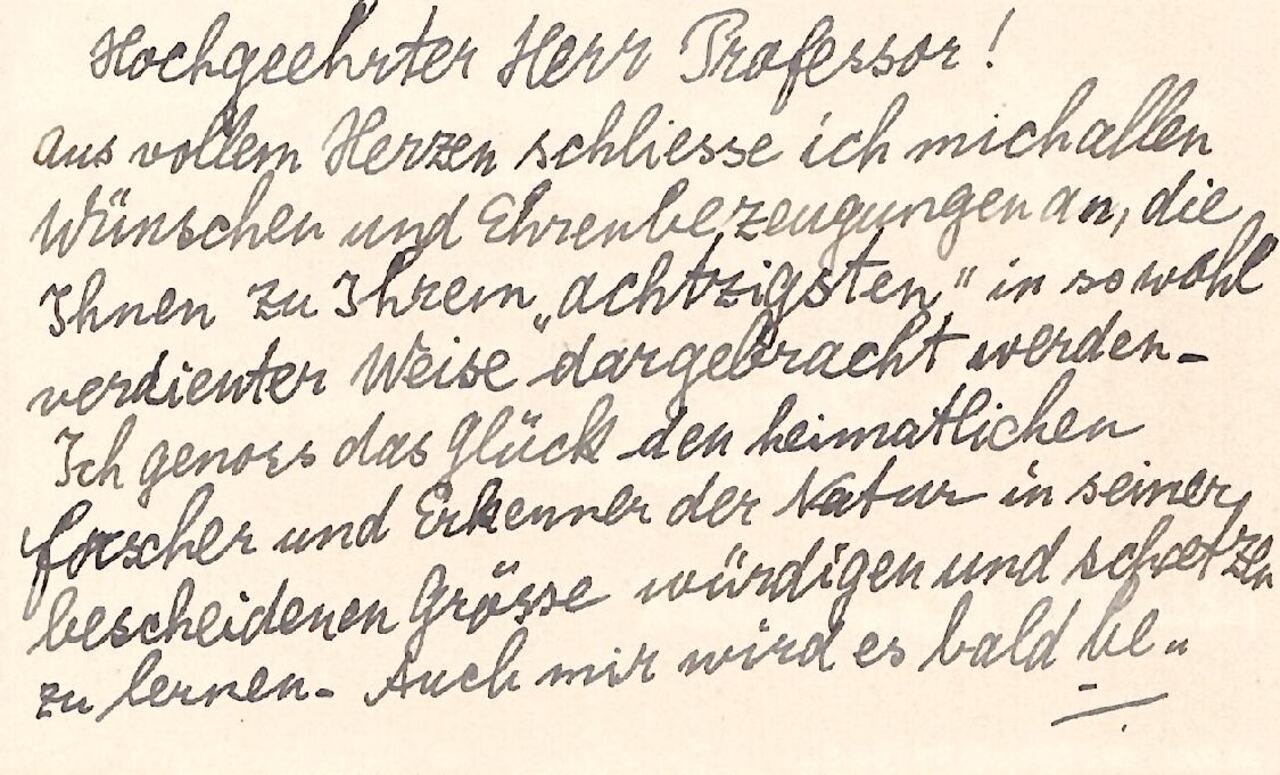 Hochgeehrter Herr Professor!
Aus vollem Herzen schliesse ich mich allen
Wünschen und Ehrenbezeugungen an, die
Ihnen zu Ihrem „achtzigsten" in so wohl
verdienter Weise dargebracht werden-
Ich genoss das Glück den heimatlichen
Forscher und Erkenner der Natur in seiner
bescheidenen Grösse würdigen und schaetzen
zu lernen- Auch mir wird es bald be-